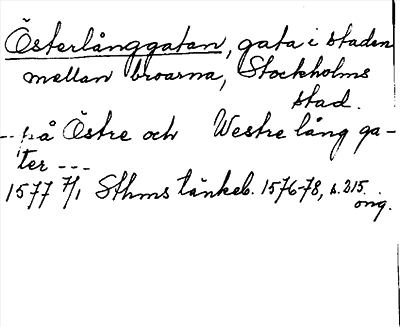 Österlånggatan, gata i staden
mellan broarna, Stockholms
stad.
-- på Östre och Westre lång ga-
ter ---
1577 7/1 Sthms tänkeb. 1576-78, s. 215
orig.